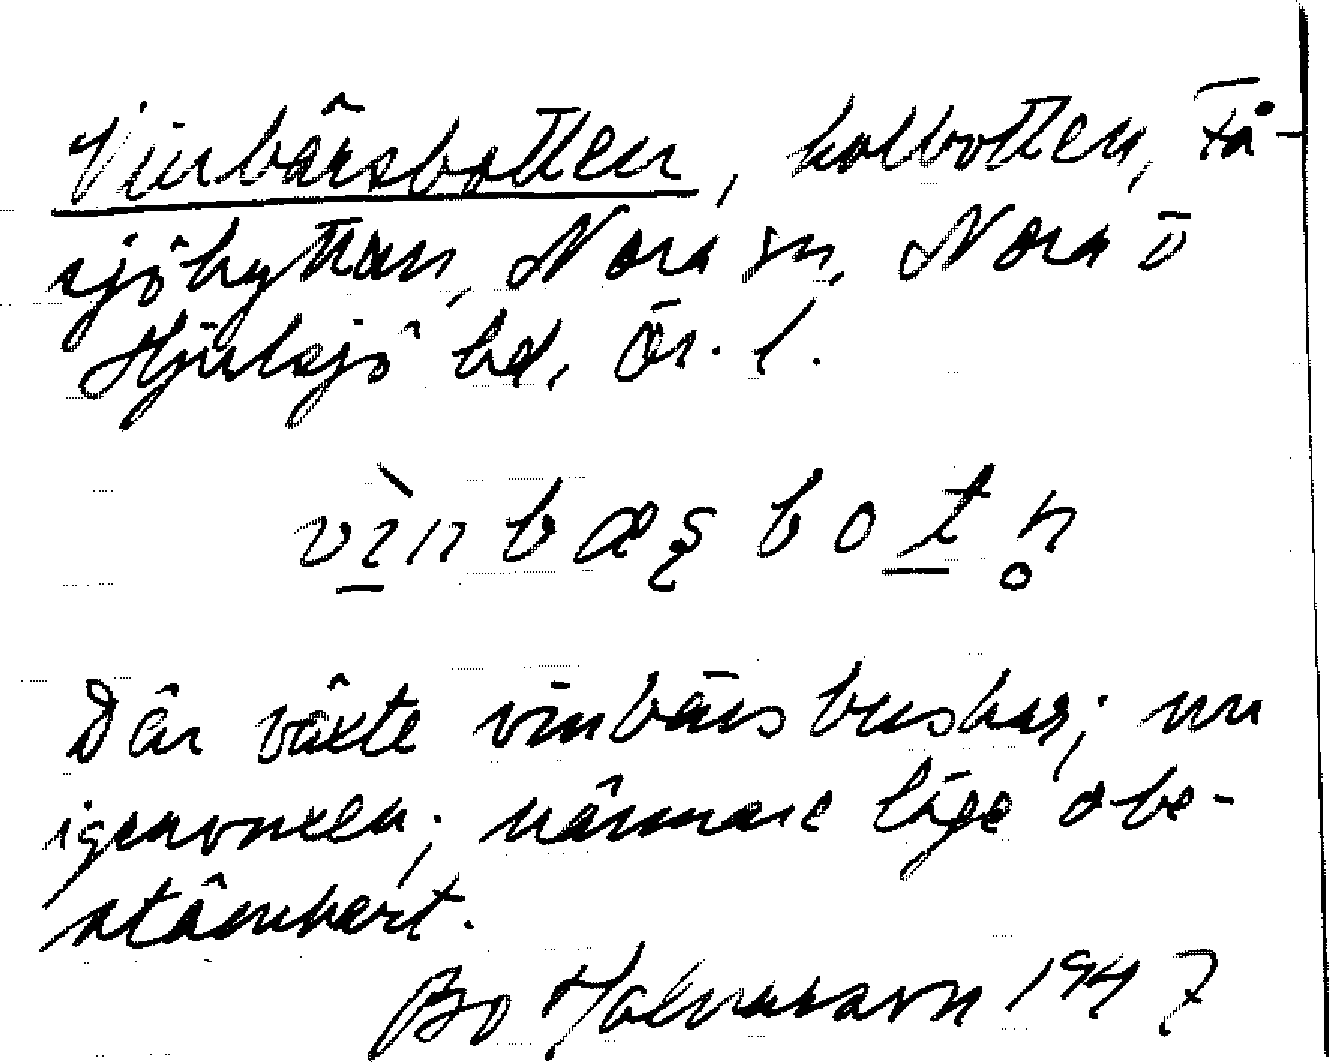 Vinbärsbotten, kolbotten, Få-
sjöhyttan, Nora sn, Nora o
Hjulsjö bd, Ör. l.
vìnbæʂbot̲n̥
Där växte vinbärsbuskar; nu
igenvuxen; närmare läge obe-
stämbart.
Bo 1947